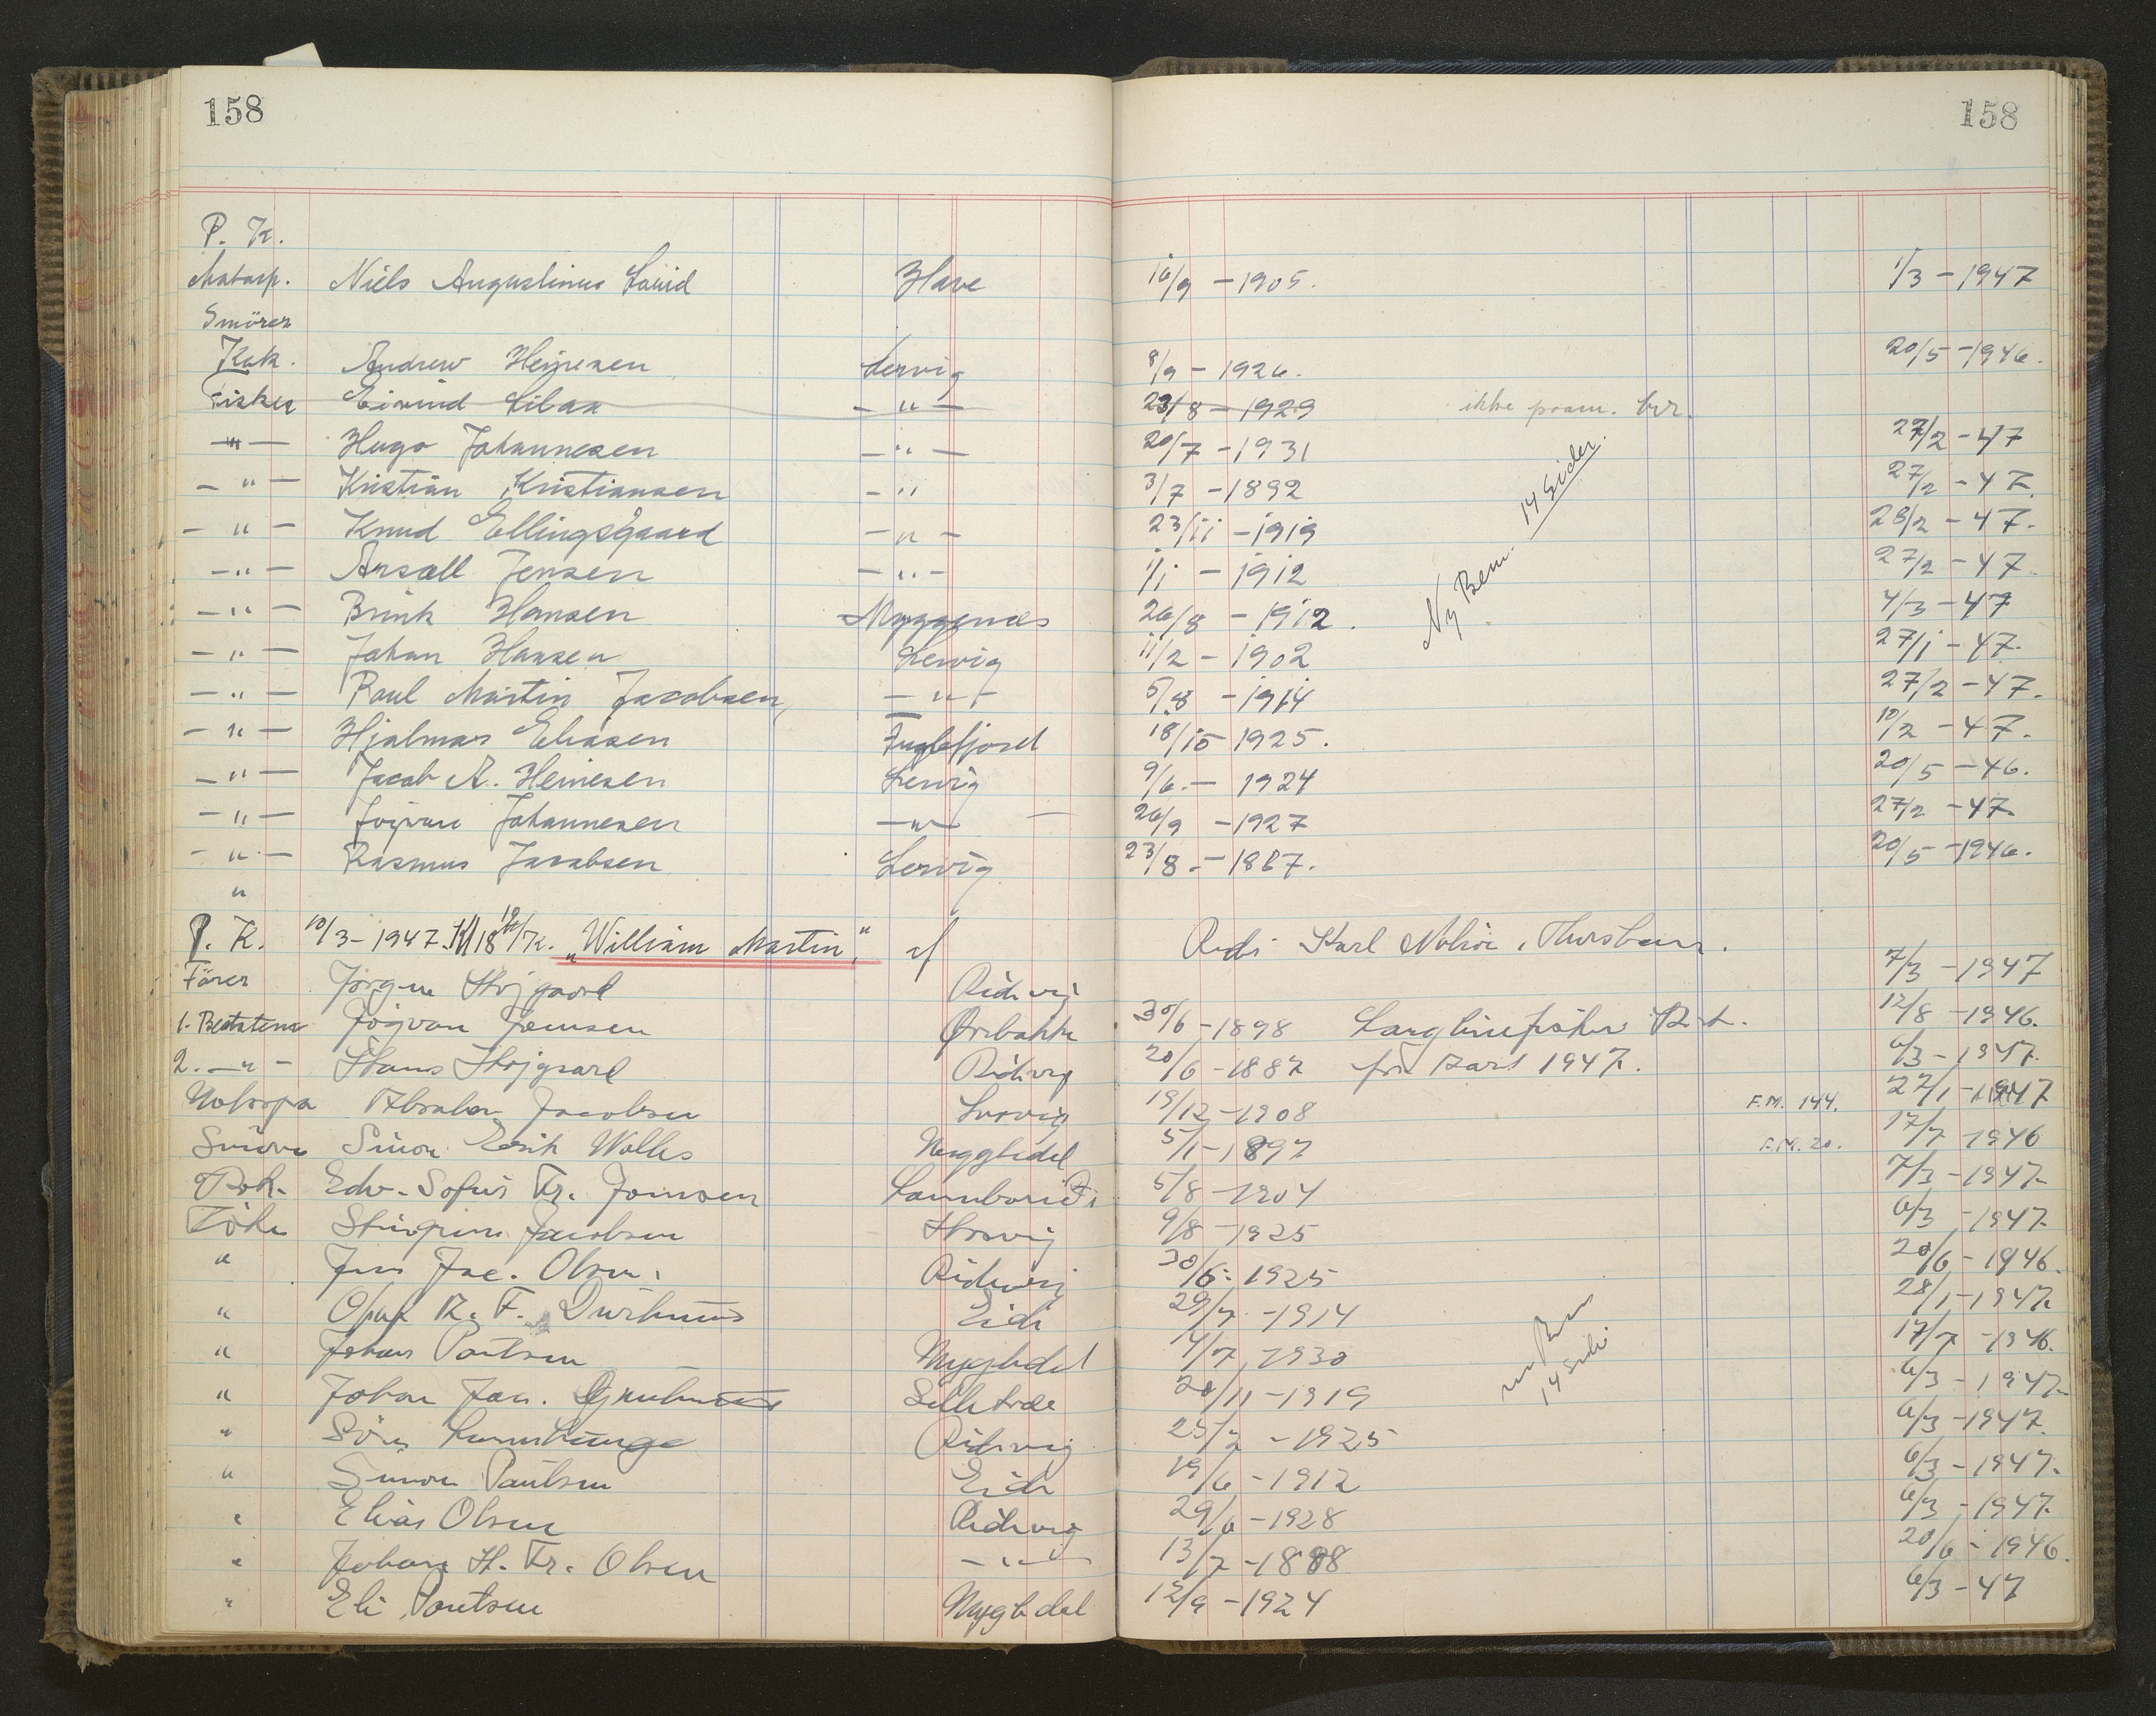 158 158
P. K.
Matasp. Niels Augustinus David Have 16/9 - 1905. 1/3 - 1947
Smörer
Kok. Andrew Heinesen Lervig 8/9 - 1926. 20/5 - 1946.
Fisker Eivind 23/8 - 1929 ikke
- " - Hugo Johannesen - " - 20/7 - 1931 27/2 - 47
- " - Kristian Kristiansen - " 3/7 - 1892 27/2 - 47.
- " - Knud Ellingsgaard - " - 23/11 - 1919 28/2 - 47.
- " - Jensen - " - 1/1 - 1912 27/2 - 47.
- " - Brink Hansen Myggenæs 26/8 - 1912. 4/3 - 47
- " - Johan Hansen Lervig 11/2 - 1902 27/1 - 47.
- " - Poul Martin Jacobsen - " - 5/8 - 1914 27/2 - 47.
- " - Hjalmar Eliasen Fuglefjord 18/10 1925. 10/2 - 47.
- " - Jacob A. Heinesen Lervig 9/6. - 1924 20/5 - 46.
- " - Jógvan Johannesen - " - 26/9 - 1927 27/2 - 47.
- " - Rasmus Jacobsen Lervig 23/8. - 1887. 20/5 - 1946.
"
Ny Bem. 14 Sider.
P. K. 10/3 - 1947. Kl 18 "William Martin." af Karl Thorshavn.
Förer Jörgen Höjgaard Ridevig 7/3 - 1947
1. Bedstem Jógvan Joensen Ørebakke 30/6 - 1898 Langlinefiskeri 12/8 - 1946.
2. - " - Hans Höjgaard Ridevig 20/6 - 1887 1947. 6/3 - 1947.
Motorpa Jacobsen Lervig 19/12 - 1908 F.M. 144. 27/1 - 1947
Smörer Simon Erik Wolles Mygledal 5/1 - 1897 F.M. 20. 17/7 1946
Kok. Edv. Sofus Fr. Joensen Lambareidi 5/8 - 1904 7/3 - 1947.
Jacobsen 9/8 - 1925 6/3 - 1947.
" Jens Jac. Olsen. Ridevig 30/6 - 1925 20/6 - 1946.
" Durhuus Eide 29/7 - 1914 28/1 - 1947.
" Johan Poulsen Mygledal 4/7 1930 17/7 - 1946.
" Johan Jac. Lille 20/11 - 1919 6/3 - 1947.
" Ridevig 25/2 - 1925 6/3 - 1947.
" Simon Poulsen Eide 19/6 - 1912 6/3 - 1947.
" Elias Olsen Ridevig 29/6 - 1928 6/3 - 1947.
" Johan H. Fr. Olsen - " - 13/7 - 1888 20/6 - 1946.
" Eli Poulsen Mygledal 12/9 - 1924 6/3 - 47
14 Sider